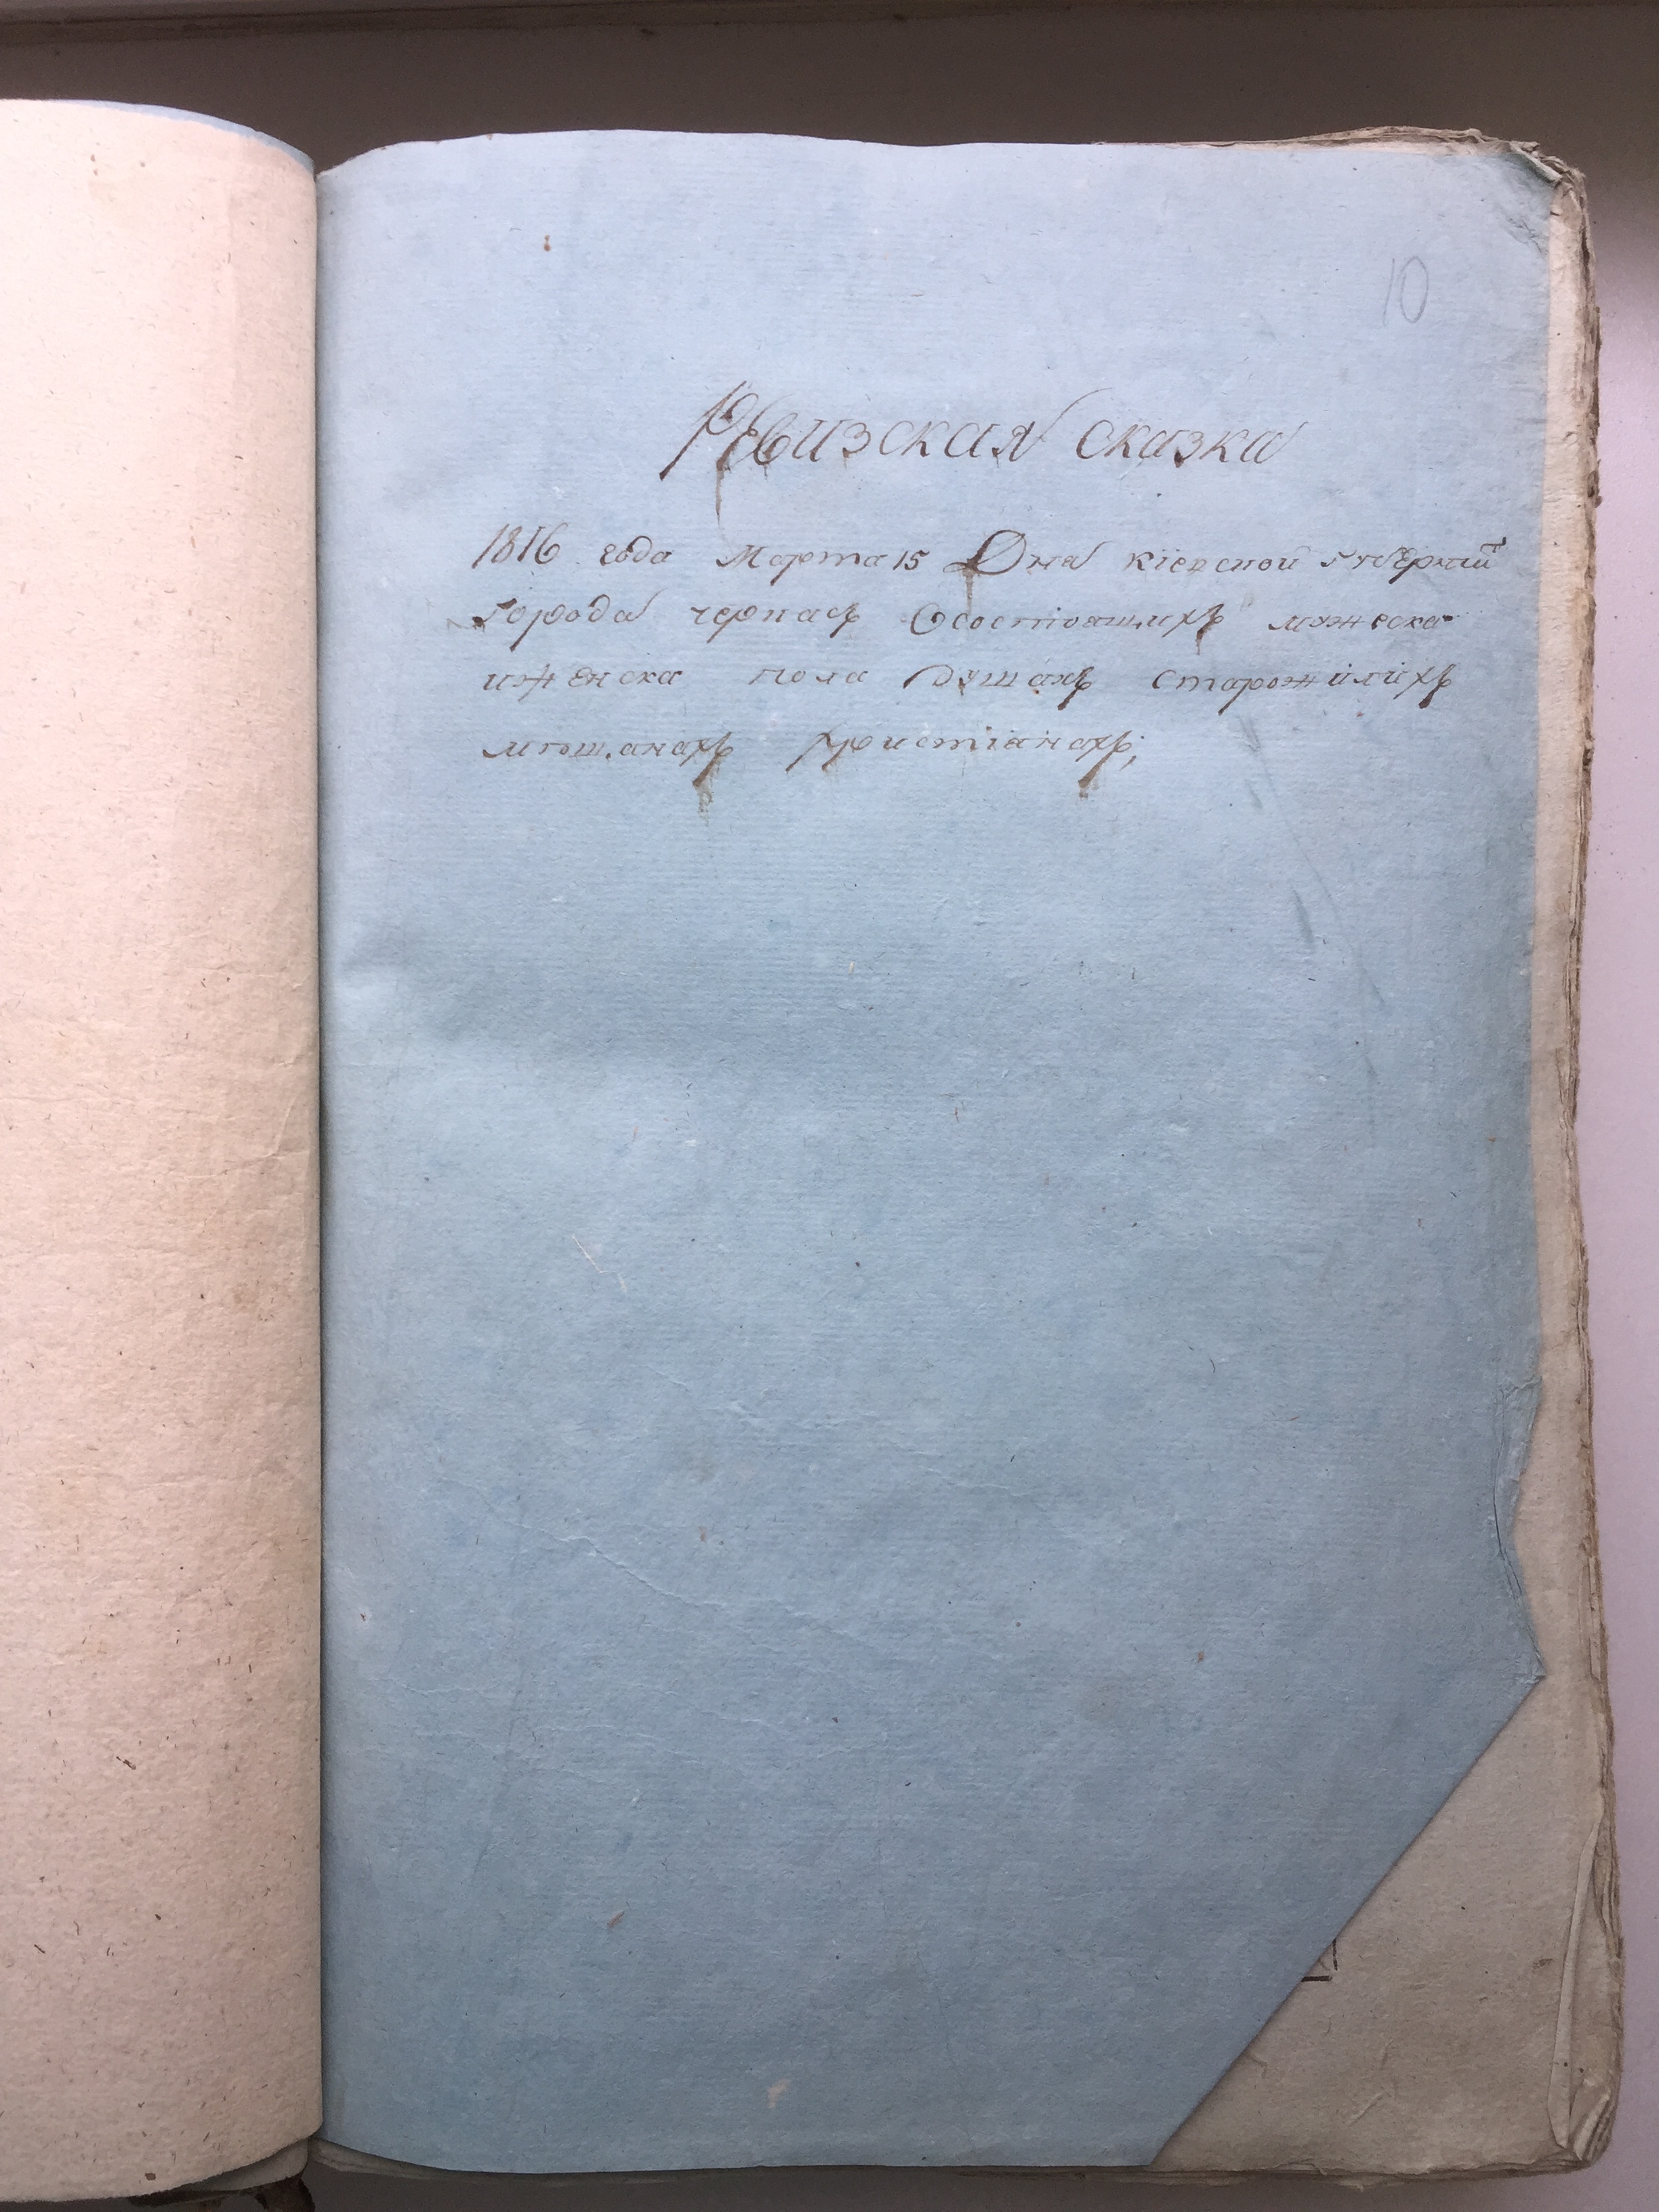 10
Ревизская сказка
1816 года Марта 15 Дня кіевской губерніи
города черкасъ Осостоящихъ мужеска
иженска пола душахъ старожилихъ
мещанахъ христіанахъ;